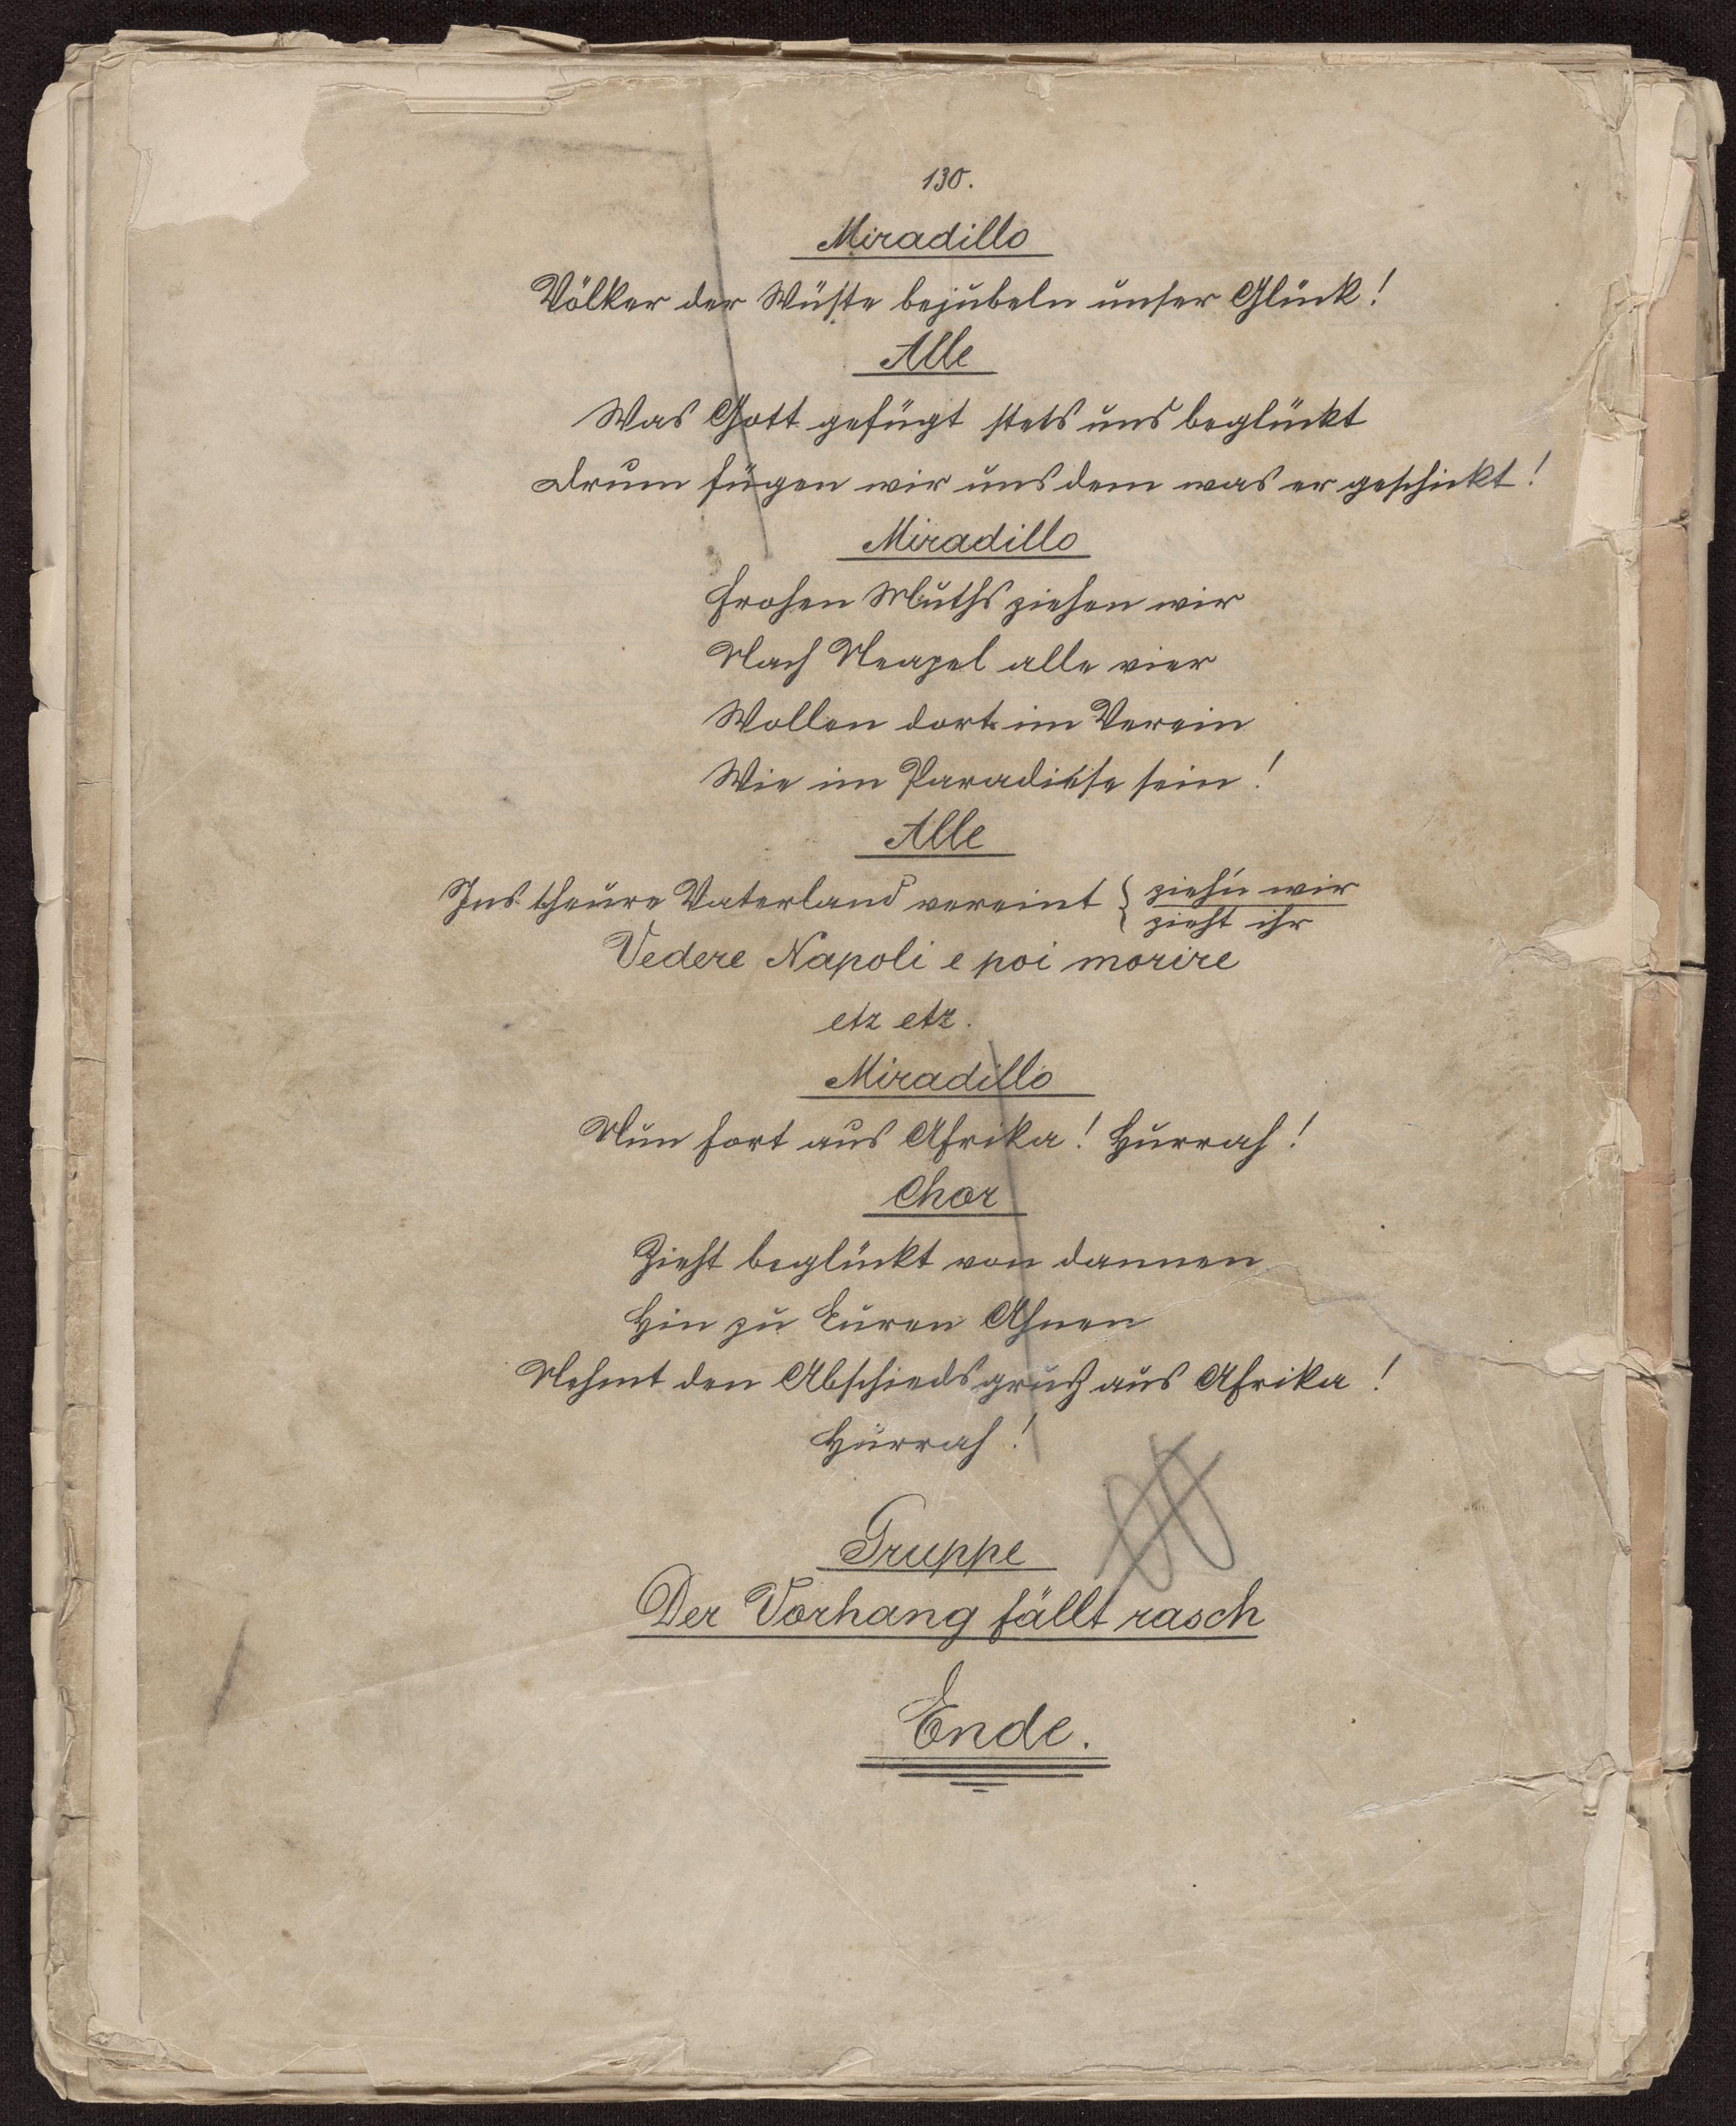 130.
Miradillo
Völker der Wüste bejubeln unser Glück!
Alle
Was Gott gefügt stets uns beglückt
Drum fügen wir uns dem was er geschickt!
Miradillo
Frohen Muths ziehen wir
Nach Neapel alle vier
Wollen dort im Verein
Wie im Paradiese sein!
Alle
Ins theure Vaterland vereint { zieh'n wir
zieht ihr
Vedere Napoli e poi morire
etz etz.
Miradillo
Nun fort aus Afrika! Hurrah!
Chor
Zieht beglückt von dannen
Hin zu Euren Ahnen
Nehmt den Abschiedsgruß aus Afrika!
Hurrah!
Gruppe
Der Vorhang fällt rasch
Ende.